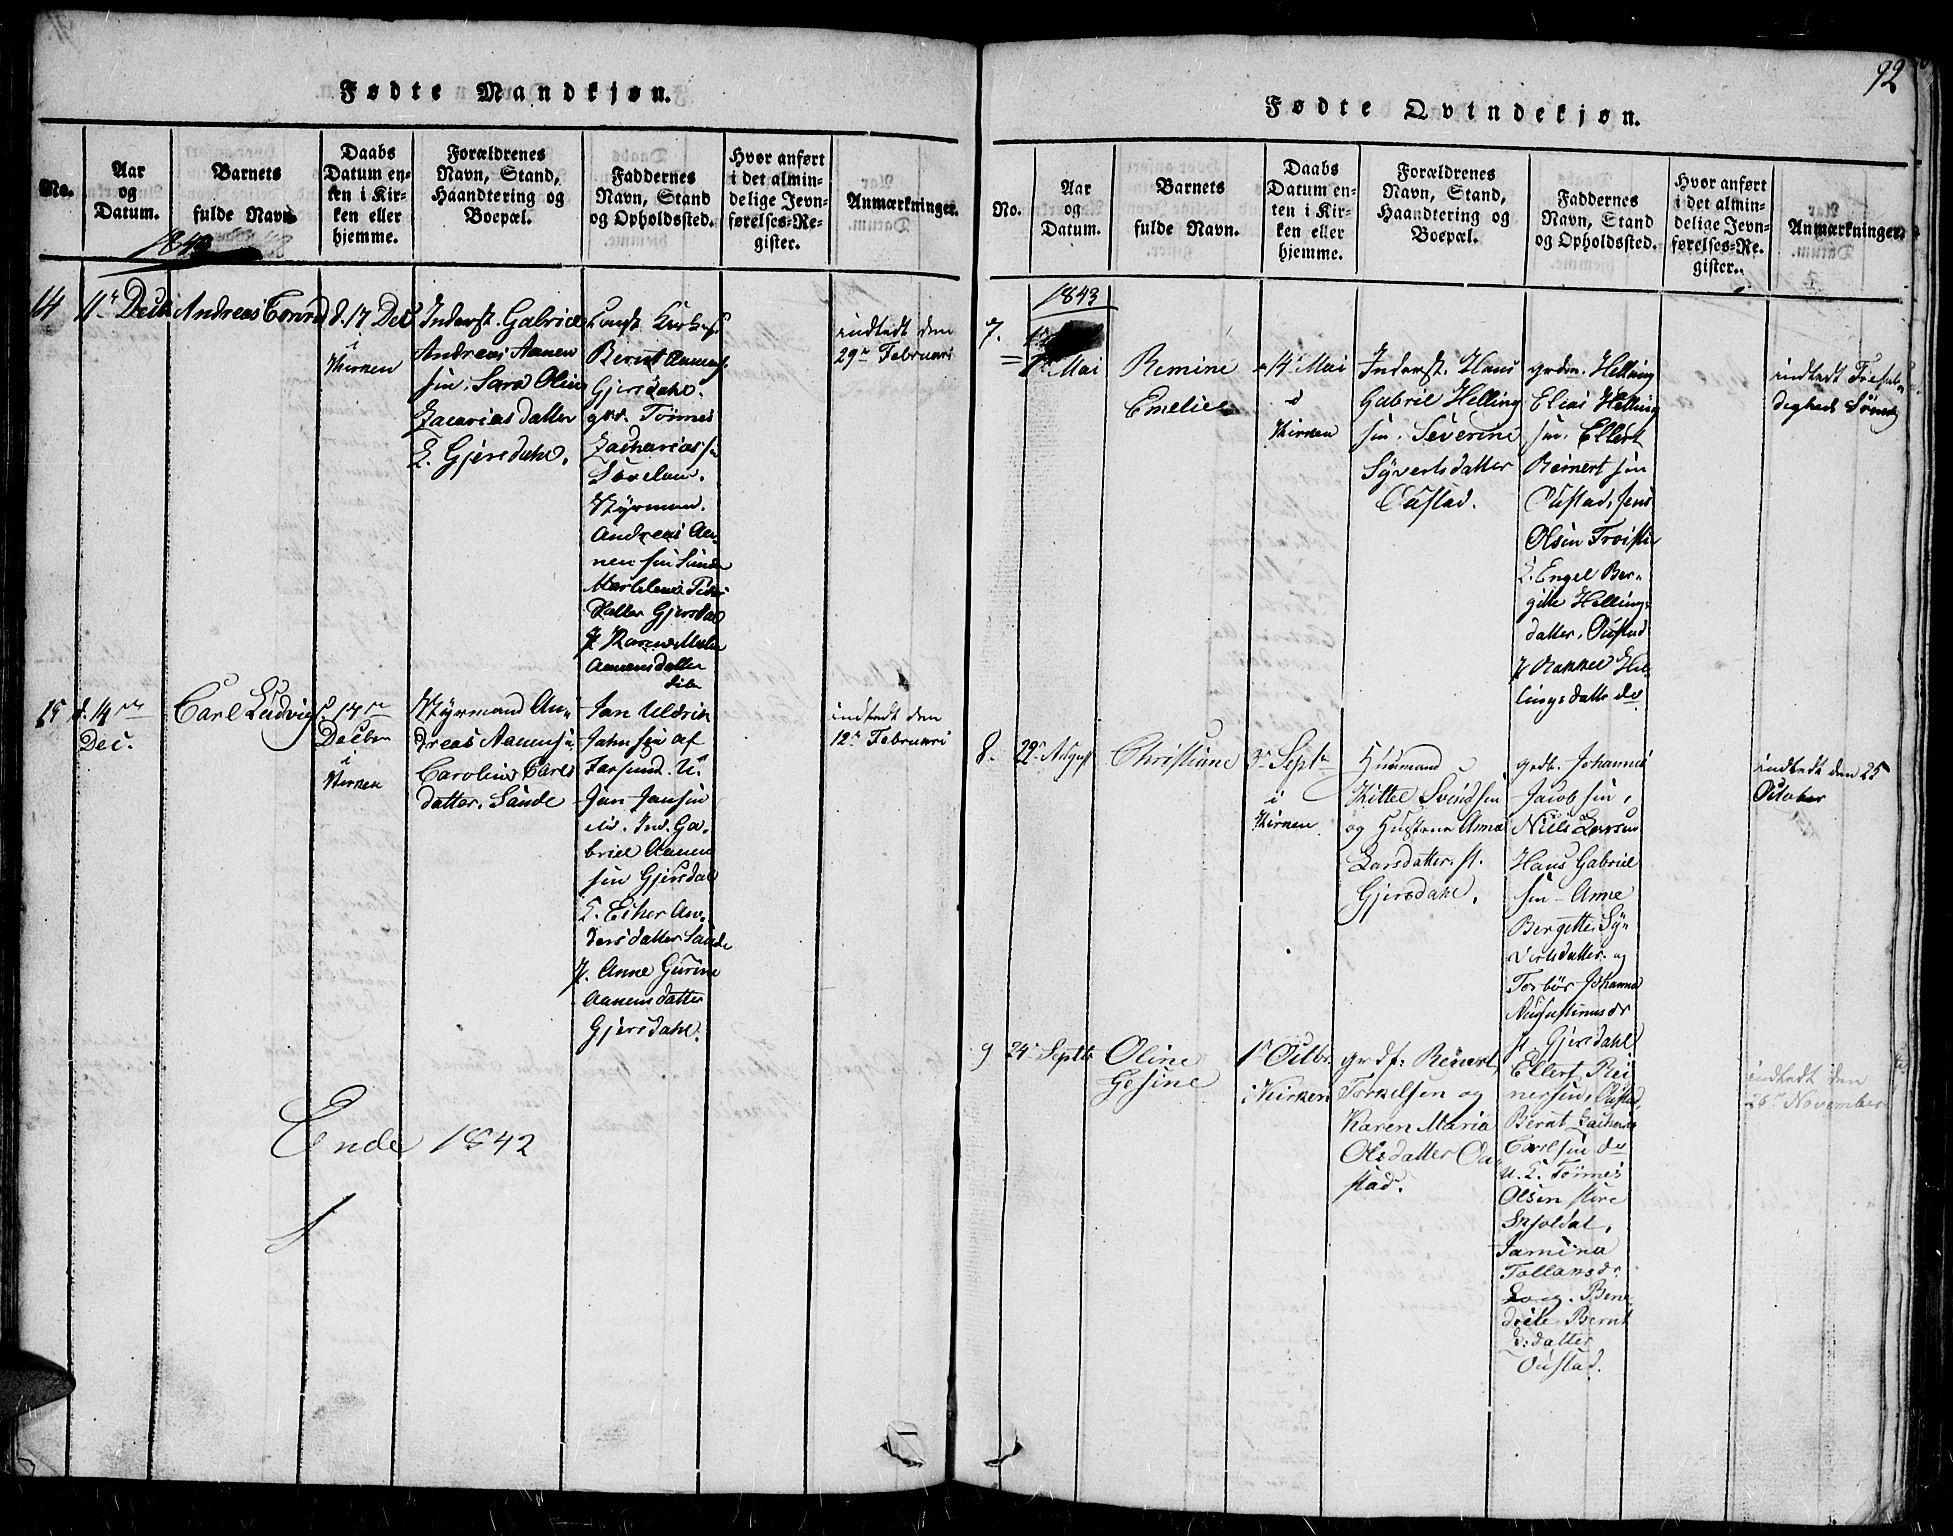 92
Fødte Mandkjøn.
No.
Aar
og
Datum.
Barnets
fulde Navn
Daabs
Datum en-
ten i Kir-
ken eller
hjemme.
Forældrenes
Navn, Stand,
Haandtering og
Boepæl.
Faddernes
Navn, Stand
og Opholdssted.
Hvor anført
i det almin-
delige Jevn-
førelses-Re-
gister.
Anmærkninger.
14
11te Decb
Andreas Conrad
d. 17 Dec
i
Kirken
Inderst. Gabriel
Andreas Aanen
sen, Sara Oline
Zacarias datter
L. Gjersdahl.
Bernt Aanens.
Gjersdahl.
grd. Tørnes
Zachariassen
Andreas Aa-
nen sen Sande
datter Gjersdal
Aanensdatter
indtedt den
29de Februari
15
d. 14de
Dec.
Carl Ludvig
d. 17de
Decbr
i
Kirken
Styrmand An-
dreas Aanensen
Caroline Carls
datter. Sande
Jan Uldrik
Jahnsen af
Farsund. U.
Jan Jansen
ibid. Ind. Ga-
briel Aanen
sen Gjersdal
L. Esther An-
dersdatter Sande
P. Anne Gurine
Aanensdatter
Gjersdahl.
indtedt den
12te Februari
Ende 1842
Fødte Qvindekjøn.
No.
Aar
og
Datum.
Barnets
fulde Navn.
Daabs
Datum en-
ten i Kir-
ken eller
hjemme.
Forældrenes
Navn, Stand,
Haandtering og
Boepæl.
Faddernes
Navn, Stand
og Opholdssted.
Hvor anført
i det almin-
delige Jevn-
førelses-Re-
gister.
Anmærkninger.
1843
7.
Mai
Remine
Emelie
14 Mai
i
Kirken
Inderst. Hans
Gabriel Helling
sen. Severine
Syvertsdatter
Oustad.
grdm. Helling
Elias Helling
sen. Ellert
Reinert sen
Oustad, Jens
Olsen
L. Engel Ber-
gitte Hellings
datter, Oustad
P Rakkel Hel-
lingsdatter do
indtedt
8.
22de August
Christiane
3de Septr
i
Kirken
Huusmand
Kittel Svendsen
og Hustrue Anna
Larsdatter. st.
Gjersdahl.
grdb. Johannes
Jacobsen,
Niels Larsen
Hans Gabriel
sen - Anne
Bergette Sy-
vertsdatter og
Torbør Johanna
Augustinusdr
st. Gjersdahl
indtedt den 25
October
9
24de Septb
Oline
Gesine
1te Octbr.
i Kirken
grdf: Reinert
Torkelsen og
Karen Maria
Olsdatter Ou
stad.
Ellert Rei
nersen, Oustad,
Bernt Zacharias
Carlsen do
U. L. Tørnes
Olsen store
Skjoldal,
Jamina
Tollansdr
Bene
dicte Bernt
datter
Oustad.
indtedt den
26de November